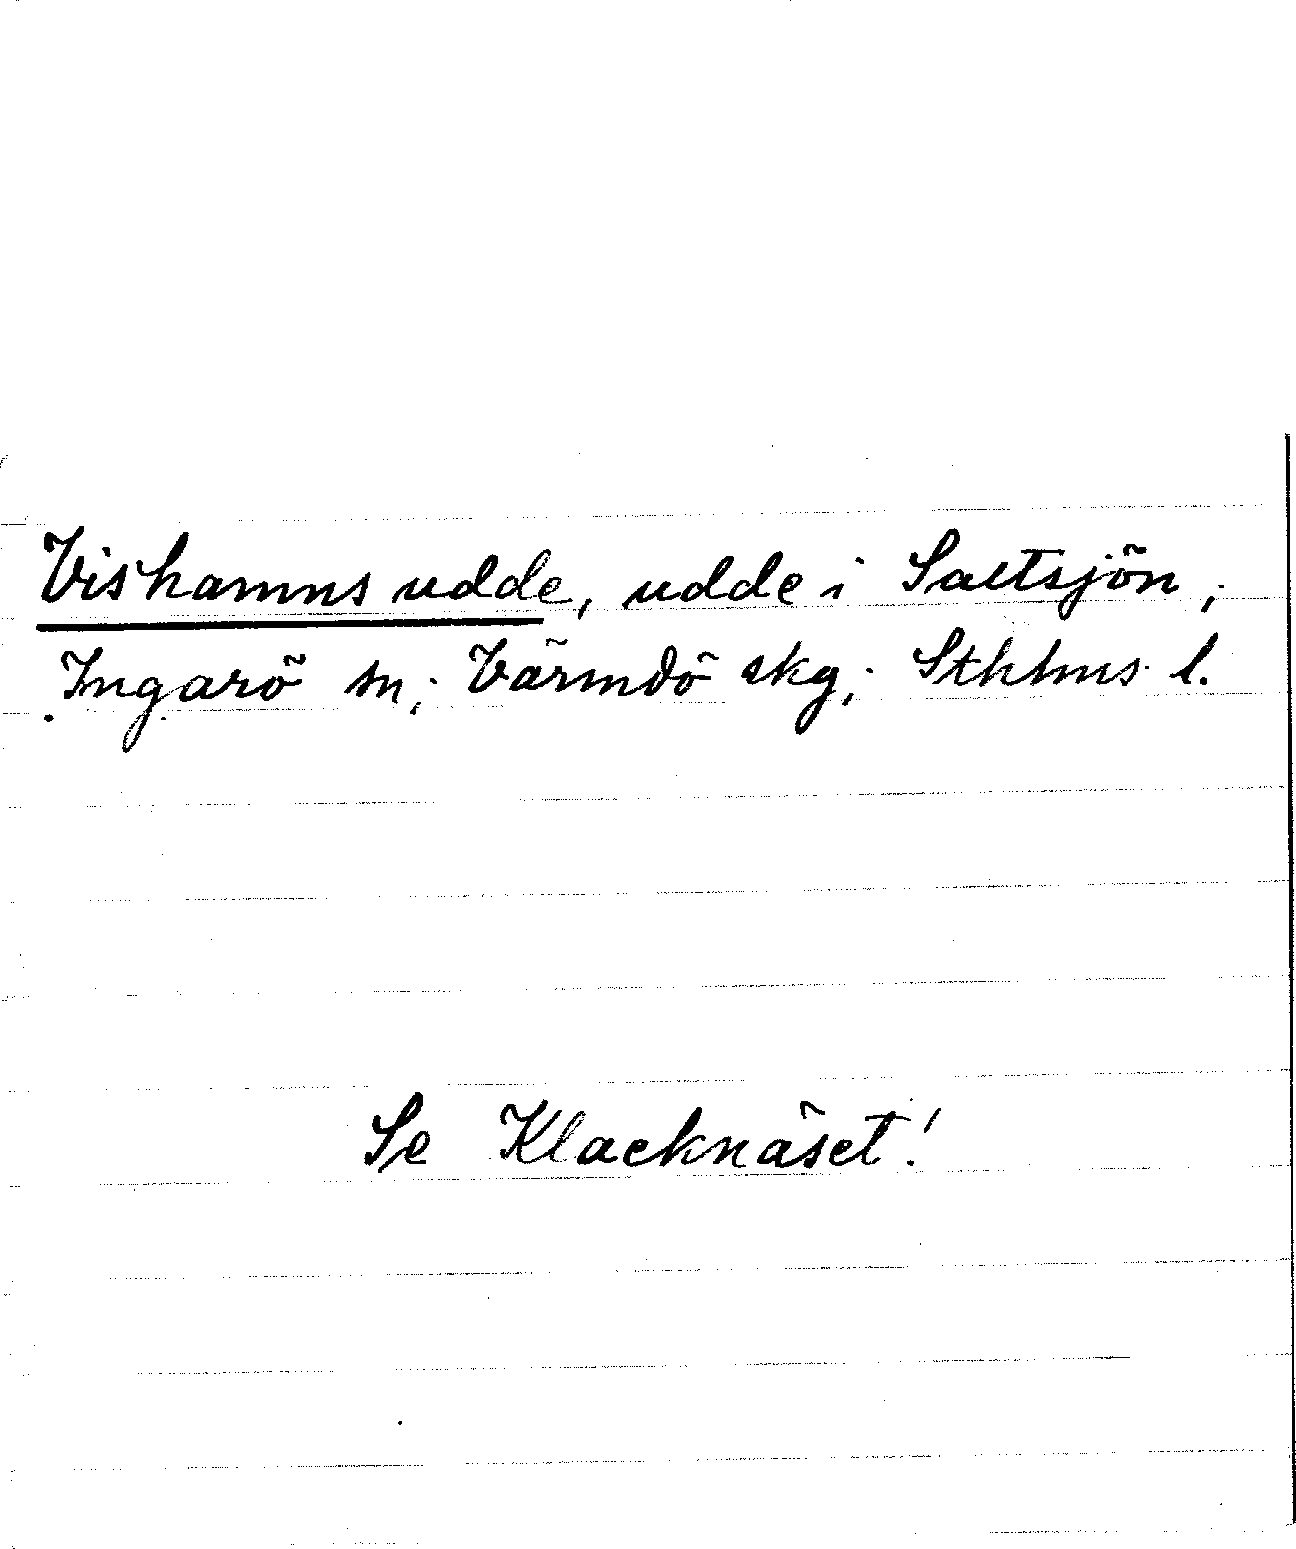 Vishamns udde, udde i Saltsjön,
Ingarö sn, Värmdö skg, Sthlms l.
Se Klacknäset!